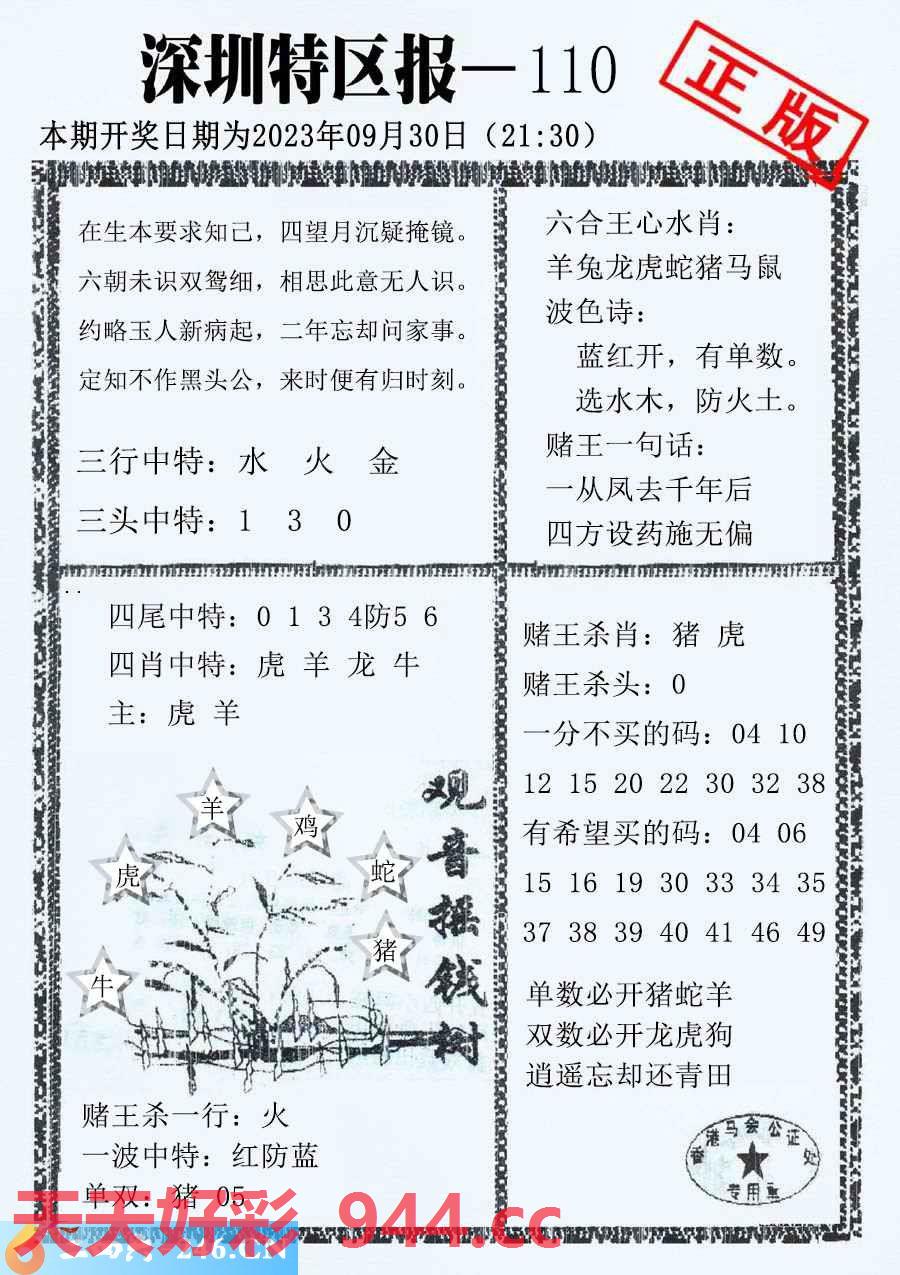 深圳特区报—110
正版
本期开奖日期为2023年09月30日（21:30）
在生本要求知己，四望月沉疑掩镜。
六朝未识双鸳细，相思此意无人识。
约略玉人新病起，二年忘却问家事。
定知不作黑头公，来时便有归时刻。
三行中特：水 火 金
三头中特：1 3 0
六合王心水肖：
羊兔龙虎蛇猪马鼠
波色诗：
蓝红开，有单数。
选水木，防火土。
赌王一句话：
一从凤去千年后
四方设药施无偏
四尾中特：0 1 3 4防5 6
四肖中特：虎 羊 龙 牛
主：虎 羊
羊
鸡
虎
蛇
猪
牛
观音摇钱树
赌王杀一行：火
一波中特：红防蓝
单双：猪 05
赌王杀肖：猪 虎
赌王杀头：0
一分不买的码：04 10
12 15 20 22 30 32 38
有希望买的码：04 06
15 16 19 30 33 34 35
37 38 39 40 41 46 49
单数必开猪蛇羊
双数必开龙虎狗
逍遥忘却还青田
香港马会公证处
专用章
天天好彩 944.cc